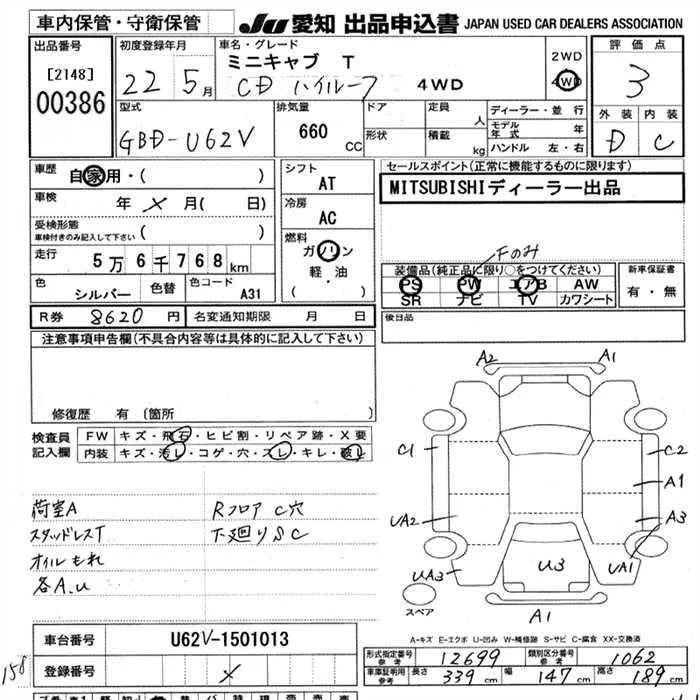 車内保管・守衛保管
JU 愛知 出品申込書 JAPAN USED CAR DEALERS ASSOCIATION
出品番号
[2148]
00386
初度登録年月
22 5月
車名・グレード
ミニキャブ T
CD ハイルーフ 4WD
2WD
4WD
評価点
3
外装 内装
D C
型式
GBD-U62V
排気量
660 cc
ドア
形状
定員 人
積載 kg
ディーラー・並行
モデル年式 年
ハンドル 左・右
車歴
自家用・( )
車検 年 メ 月( 日)
受検形態
車検付きのみ記入して下さい ( )
走行 5万6千768km
色 シルバー 色替 色コード A31
シフト
AT
冷房
AC
燃料
ガソリン
軽・油
( )
セールスポイント(正常に機能するものに限ります)
MITSUBISHIディーラー出品
Fのみ
装備品(純正品に限り○をつけてください)
PS PW エアB AW
SR ナビ TV カワシート
新車保証書
有・無
R券 8620 円 名変通知期限 月 日
後日品
注意事項申告欄(不具合内容等は具体的に記入して下さい)
修復歴 有 〔箇所
検査員記入欄
FW キズ・飛石・ヒビ割・リペア跡・X要
内装 キズ・汚レ・コゲ・穴・スレ・キレ・破レ
荷室A
スタッドレスT
オイルもれ
各A.U
Rフロア C穴
下廻りSC
A2 A1
C1 C2
A1
UA2 A3
UA3 U3 UA1
スペア
A1
A-キズ E-エクボ U-凹み W-補修跡 S-サビ C-腐食 XX-交換済
車台番号 U62V-1501013
登録番号 メ
158
形式指定番号 参考 12699 類別区分番号 参考 1062
車庫証明用 参考 長さ 339 cm 幅 147 cm 高さ 189 cm